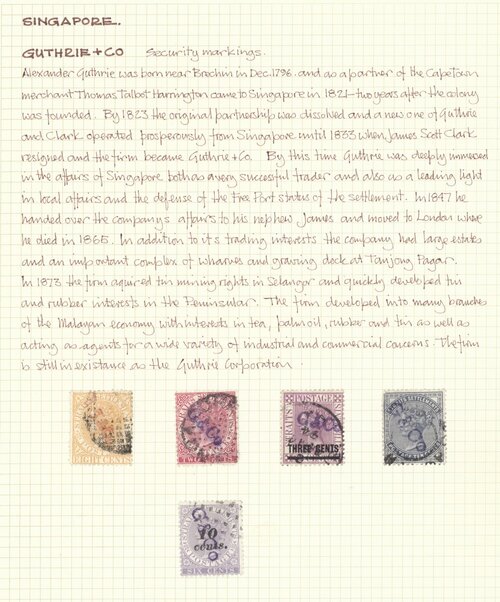 SINGAPORE.
GUTHRIE + CO Security markings.
Alexander Guthrie was born near Brechin in Dec. 1796. and as a partner of the Capetown
merchant Thomas Talbot Harrington came to Singapore in 1821 - two years after the colony
was founded. By 1823 the original partnership was dissolved and a new one of Guthrie
and Clark operated prosperously from Singapore until 1833 when James Scott Clark
resigned and the firm became Guthrie + Co. By this time Guthrie was deeply immersed
in the affairs of Singapore both as a very successful trader and also as a leading light
in local affairs and the defense of the Free Port status of the settlement. In 1847 he
handed over the company's affairs to his nephew James and moved to London where
he died in 1865. In addition to it's trading interests the company had large estates
and an important complex of wharves and graving dock at Tanjong Pagar.
In 1873 the firm aquired tin mining rights in Selangor and quickly developed tin
and rubber interests in the Peninsular. The firm developed into many branches
of the Malayan economy with interests in tea, palm oil, rubber and tin as well as
acting as agents for a wide variety of industrial and commercial concerns. The firm
is still in existance as the Guthrie Corporation.
EIGHT CENTS
G&Co
POSTAGE
G&C
THREE CENTS
10
cents.
SIX CENTS